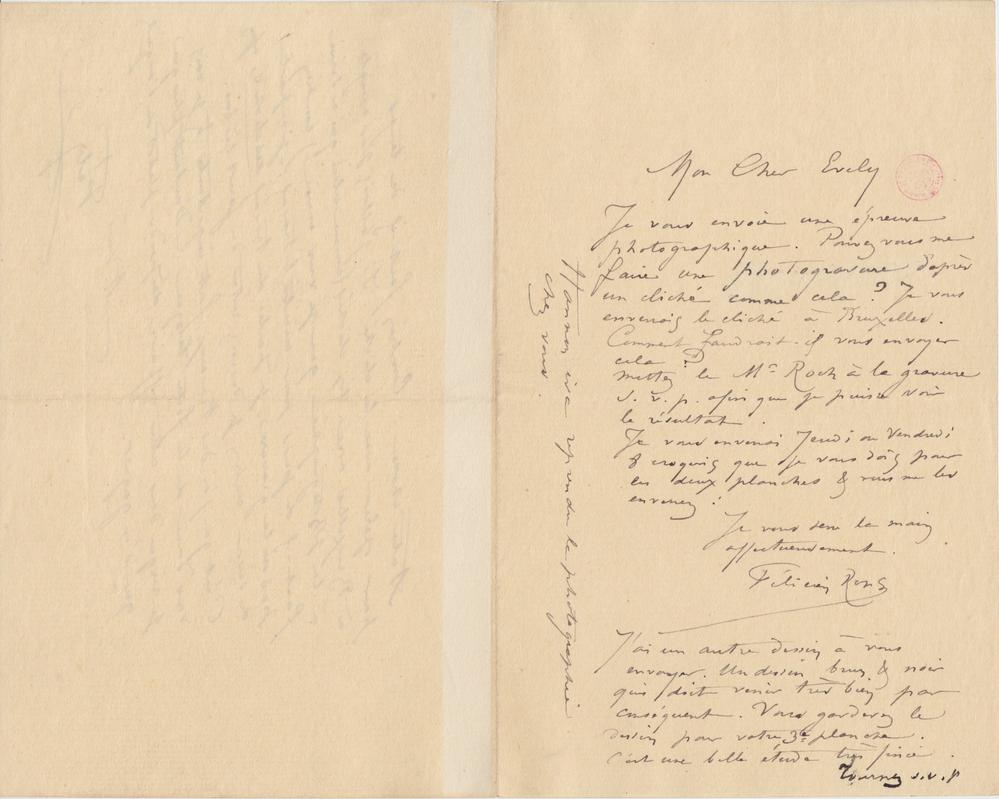 Mon Cher Evely
Je vous envoie une épreuve
photographique. Pouvez vous me
faire une photogravure d'après
un cliché comme cela ? Je vous
enverrais le cliché à Bruxelles.
Comment faudrait-il vous envoyer
cela ?
mettez le Mr Roch à la gravure
s. v. p. afin que je puisse voir
le résultat.
Je vous enverrai Jeudi ou Vendredi
croquis que je vous dois pour
les deux planches & vous me les
enverrez !
Je vous serre la main
affectueusement.
Félicien Rops
J'ai un autre dessin à vous
envoyer. Un dessin brun & noir
qui doit venir très bien par
conséquent. Vous garderez le
dessin pour votre 3e planche.
C'est une belle étude très finie.
Tournez s.v.p
Hannon ira reprendre la photographie
chez vous.